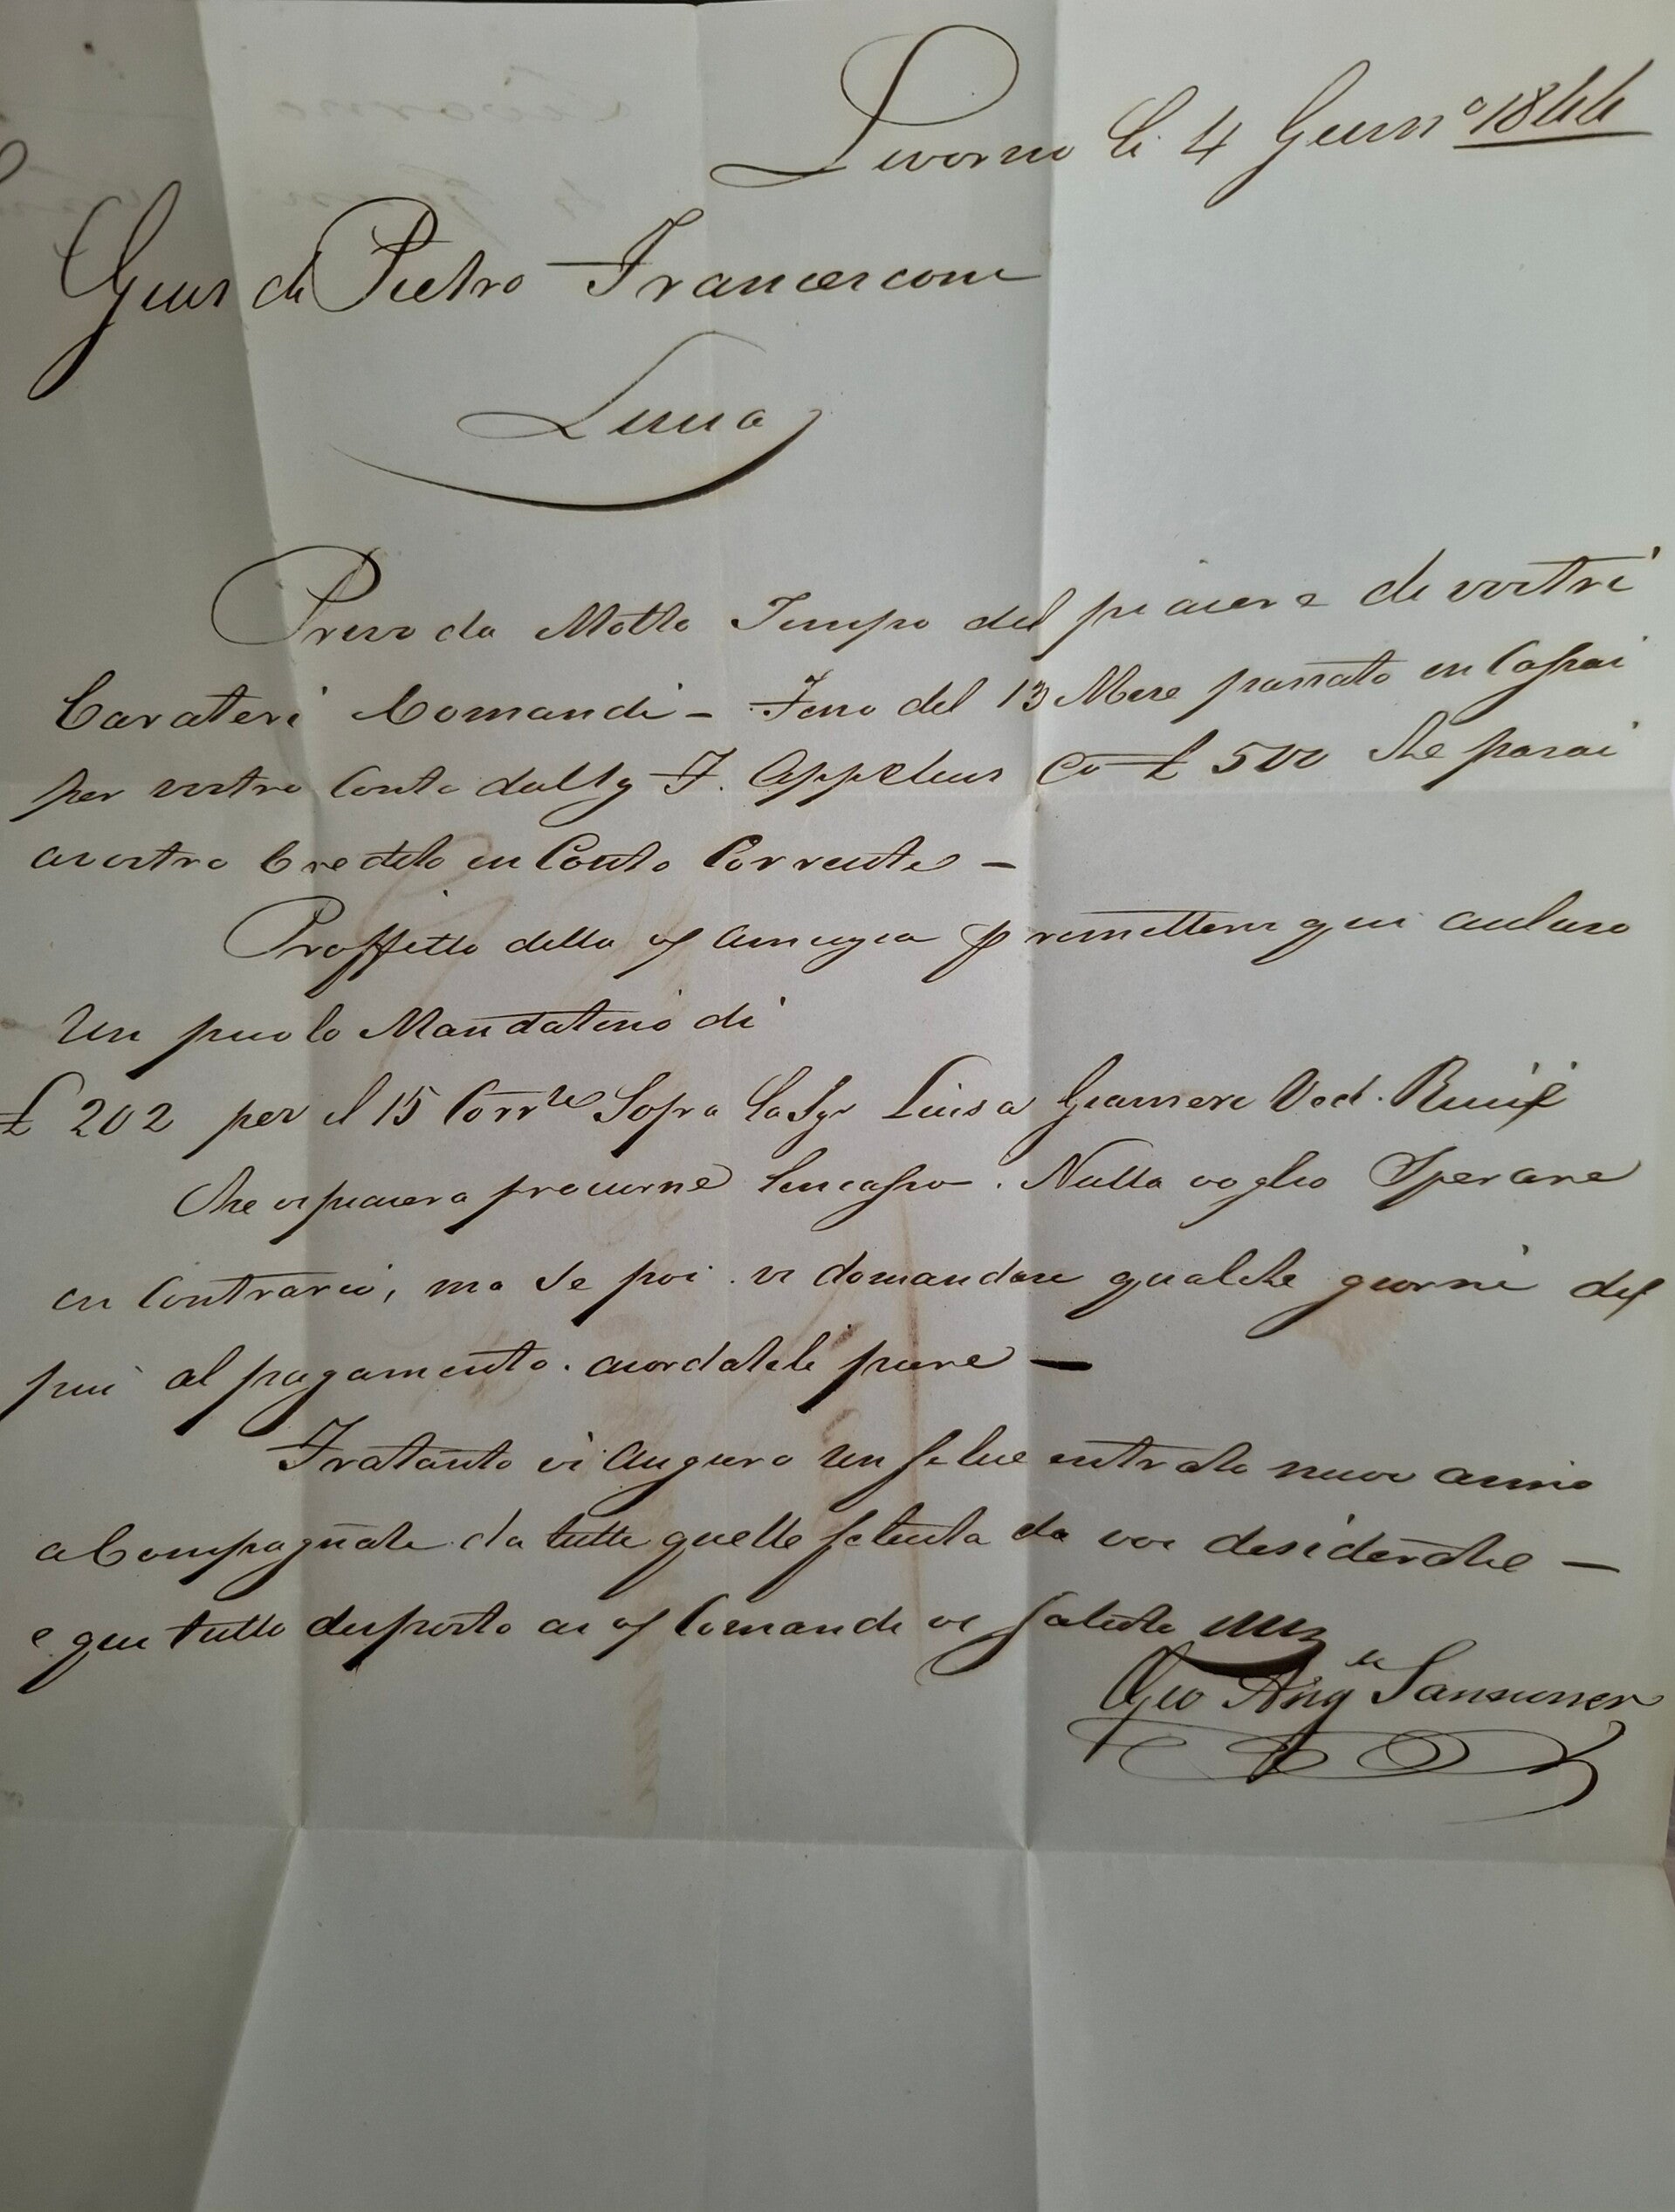 Livorno li 4 Genn° 1844
Gius di Pietro Francesconi
Lucca
Privo da Molto Tempo del piacere di vostri
Carateri Comandi – Feno del 13 Mese passato in Cassai
per vostro Conto dal Sg F. Appelius £ 500 che pasai
avostro Credito in Conto Corrente –
Proffitto della amicizia rimettervi qui acluso
Un picolo Mandateno di
£ 202 per il 15 Corr.te Sopra la Sgr Luisa Ved.
Che vi piacera procurarne lencasso. Nulla voglio Sperare
in Contrario, ma Se poi vi domandase qualche giorni di
piu al pagamento. acordateli pure –
Fratanto vi Auguro un felice entrato nuovo anno
aCompagnato da tutte quelle felicita da voi desiderate –
e qui tutto disposto ai Comandi vi Saluto
Gio Ang